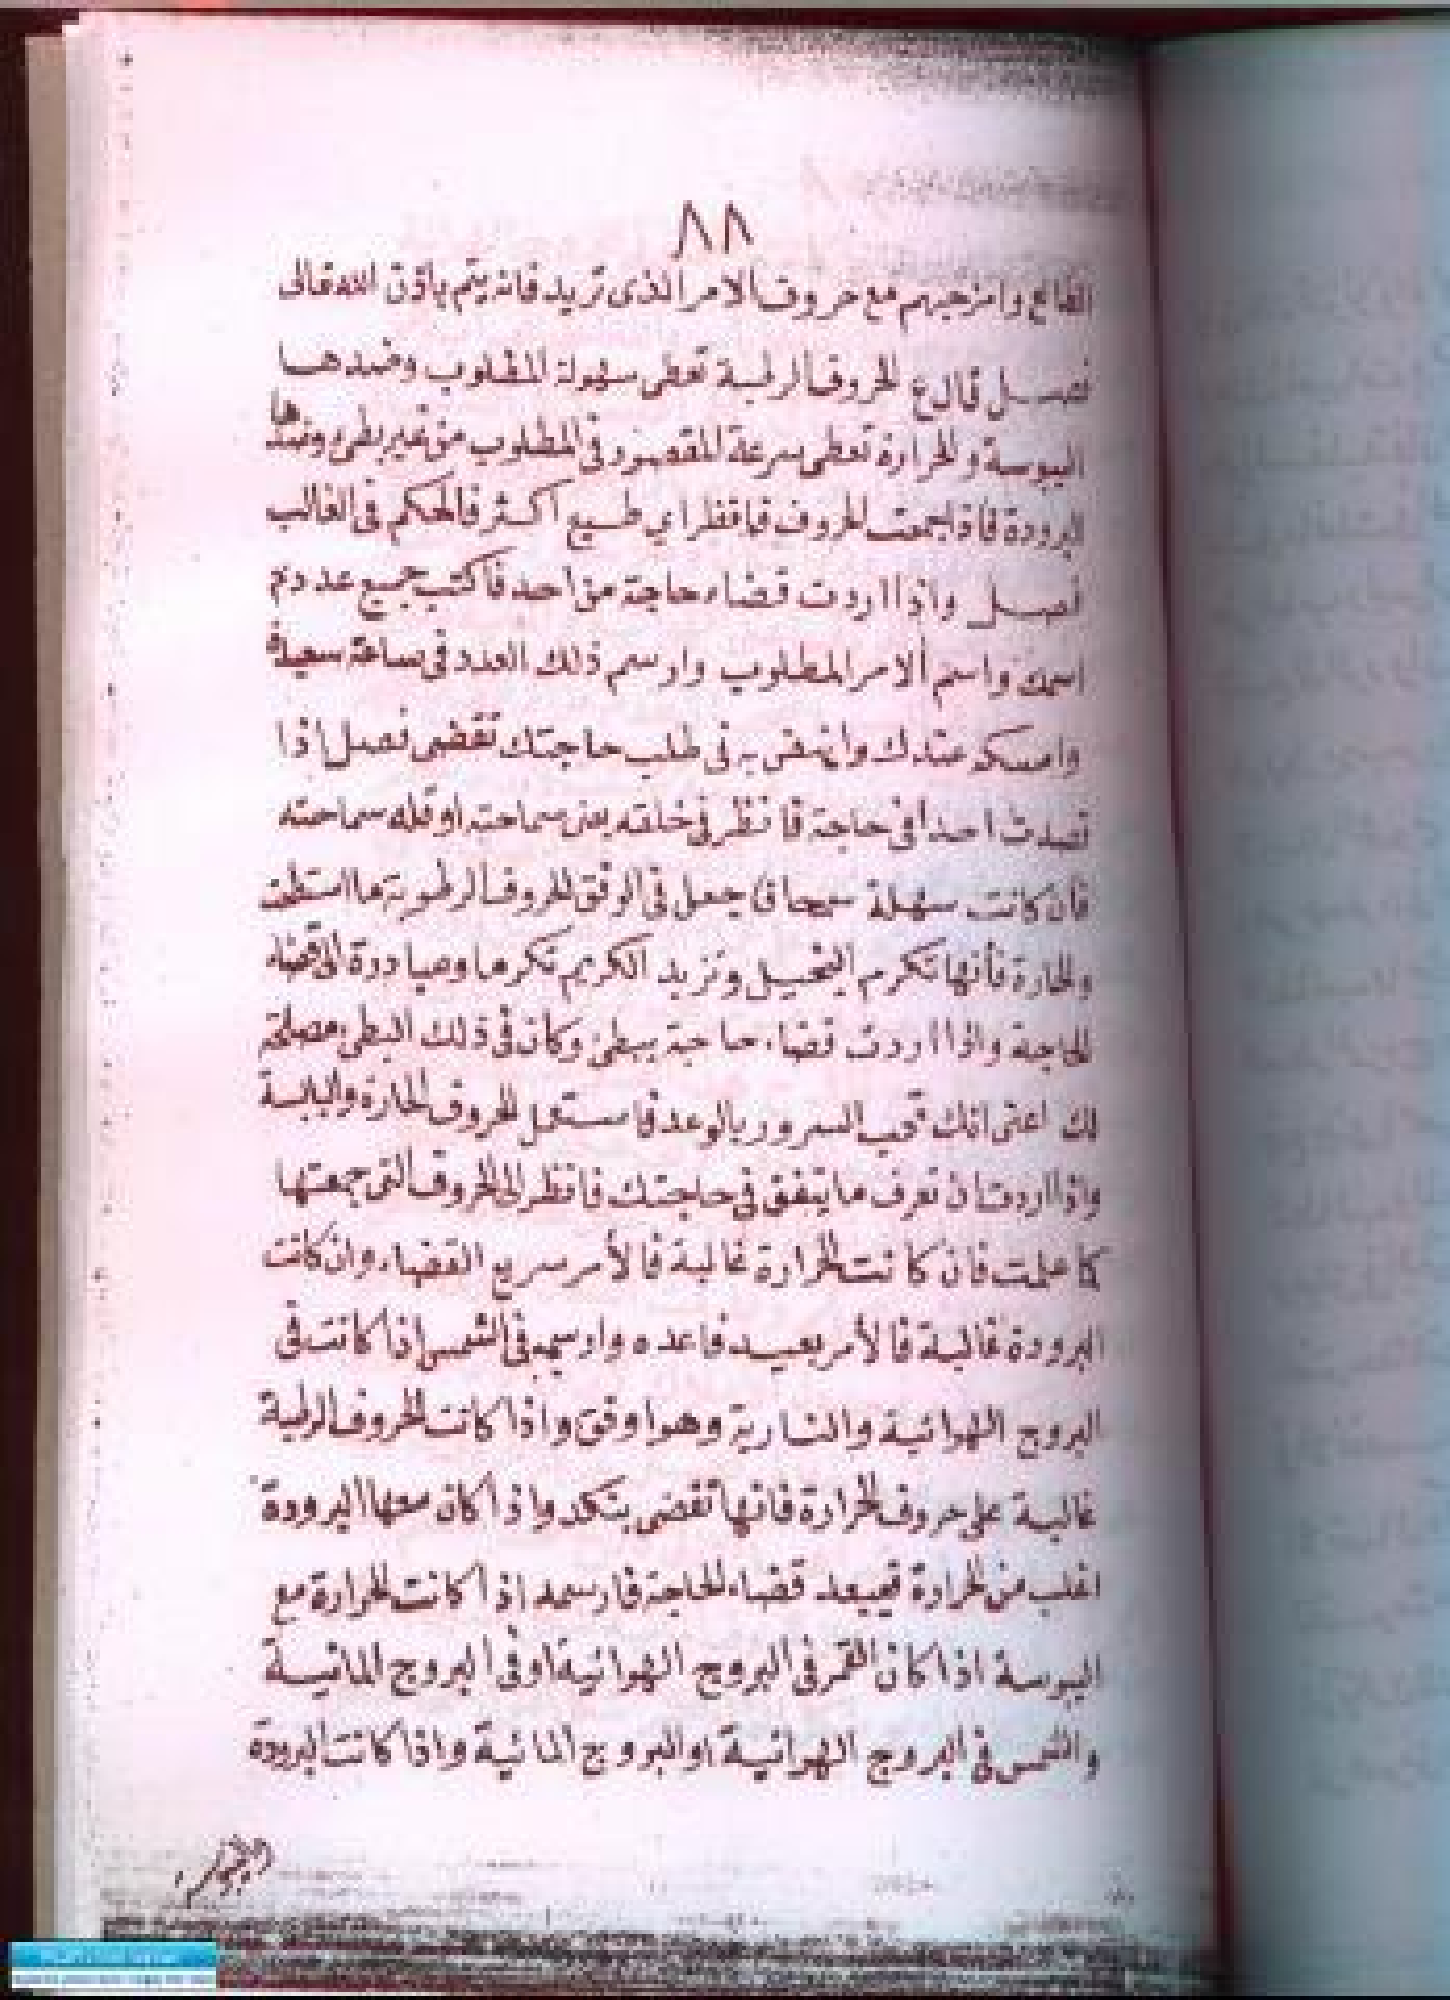 ٨٨
الطالع وامزجهم مع حروف الامر الذى تريد فانه يتم باذن الله تعالى
فصل قال ع الحروف الرطبة تعطى سهولة المطلوب وضدها
اليبوسة والحرارة تعطى سرعة المقصود فى المطلوب من غير بطىء وضدها
البرودة فاذا جمعت الحروف فانظر اي طبيع اكثر فالحكم فى الغالب
فصل واذا اردت قضاء حاجة من احد فاكتب جميع عدد
اسمك واسم الامر المطلوب وارسم ذلك العدد فى ساعة سعيدة
وامسكه عندك وانهض به فى طلب حاجتك تقضى فصل اذا
قصدت احدا فى حاجة فانظر فى خلقه يعنى سماحته او قلة سماحته
فان كانت سهلة سمحا فاجعل فى الوفق الحروف الرطوبة ما استطعت
والحارة فأنها تكرم البخيل وتزيد الكريم تكرما ومبادرة الى قضاء
الحاجة واذا اردت قضاء حاجة ببطئ وكان فى ذلك البطئ مصلحة
لك اعنى انك تحب السرور بالوعد فاستعمل الحروف الحارة واليابسة
واذا اردت ان تعرف ما يتفق فى حاجتك فانظر الى الحروف التى جمعتها
كما علمت فان كانت الحرارة غالبة فالأمر سريع القضاء وان كانت
البرودة غالبة فالأمر بعيد فاعده وارسمه فى الشمس اذا كانت فى
البروج الهوائية والنارية وهو اوفق واذا كانت الحروف الرطبة
غالبة على حروف الحرارة فانها تقضى بنكد واذا كان معها البرودة
اغلب من الحرارة فيبعد قضاء الحاجة فارسمه اذا كانت الحرارة مع
اليبوسة اذا كان القمر فى البروج الهوائية او فى البروج المائية
والشمس فى البروج الهوائية او البروج المائية واذا كانت البرودة